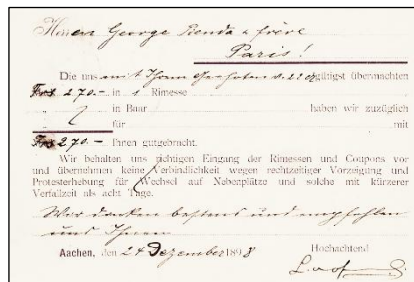 Herren George Benda & frère
Paris!
Die uns mit Ihrem Geehrten v. 22 ds gütigst übermachten
Frcs 270.- in 1 Rimesse
" in Baar haben wir zuzüglich
" für mit
Frcs 270.- Ihnen gutgebracht.
Wir behalten uns richtigen Eingang der Rimessen und Coupons vor
und übernehmen keine Verbindlichkeit wegen rechtzeitiger Vorzeigung und
Protesterhebung für Wechsel auf Nebenplätze und solche mit kürzerer
Verfallzeit als acht Tage.
Wir danken bestens und empfehlen
uns Ihnen
Aachen, den 24 Dezember 1898 Hochachtend